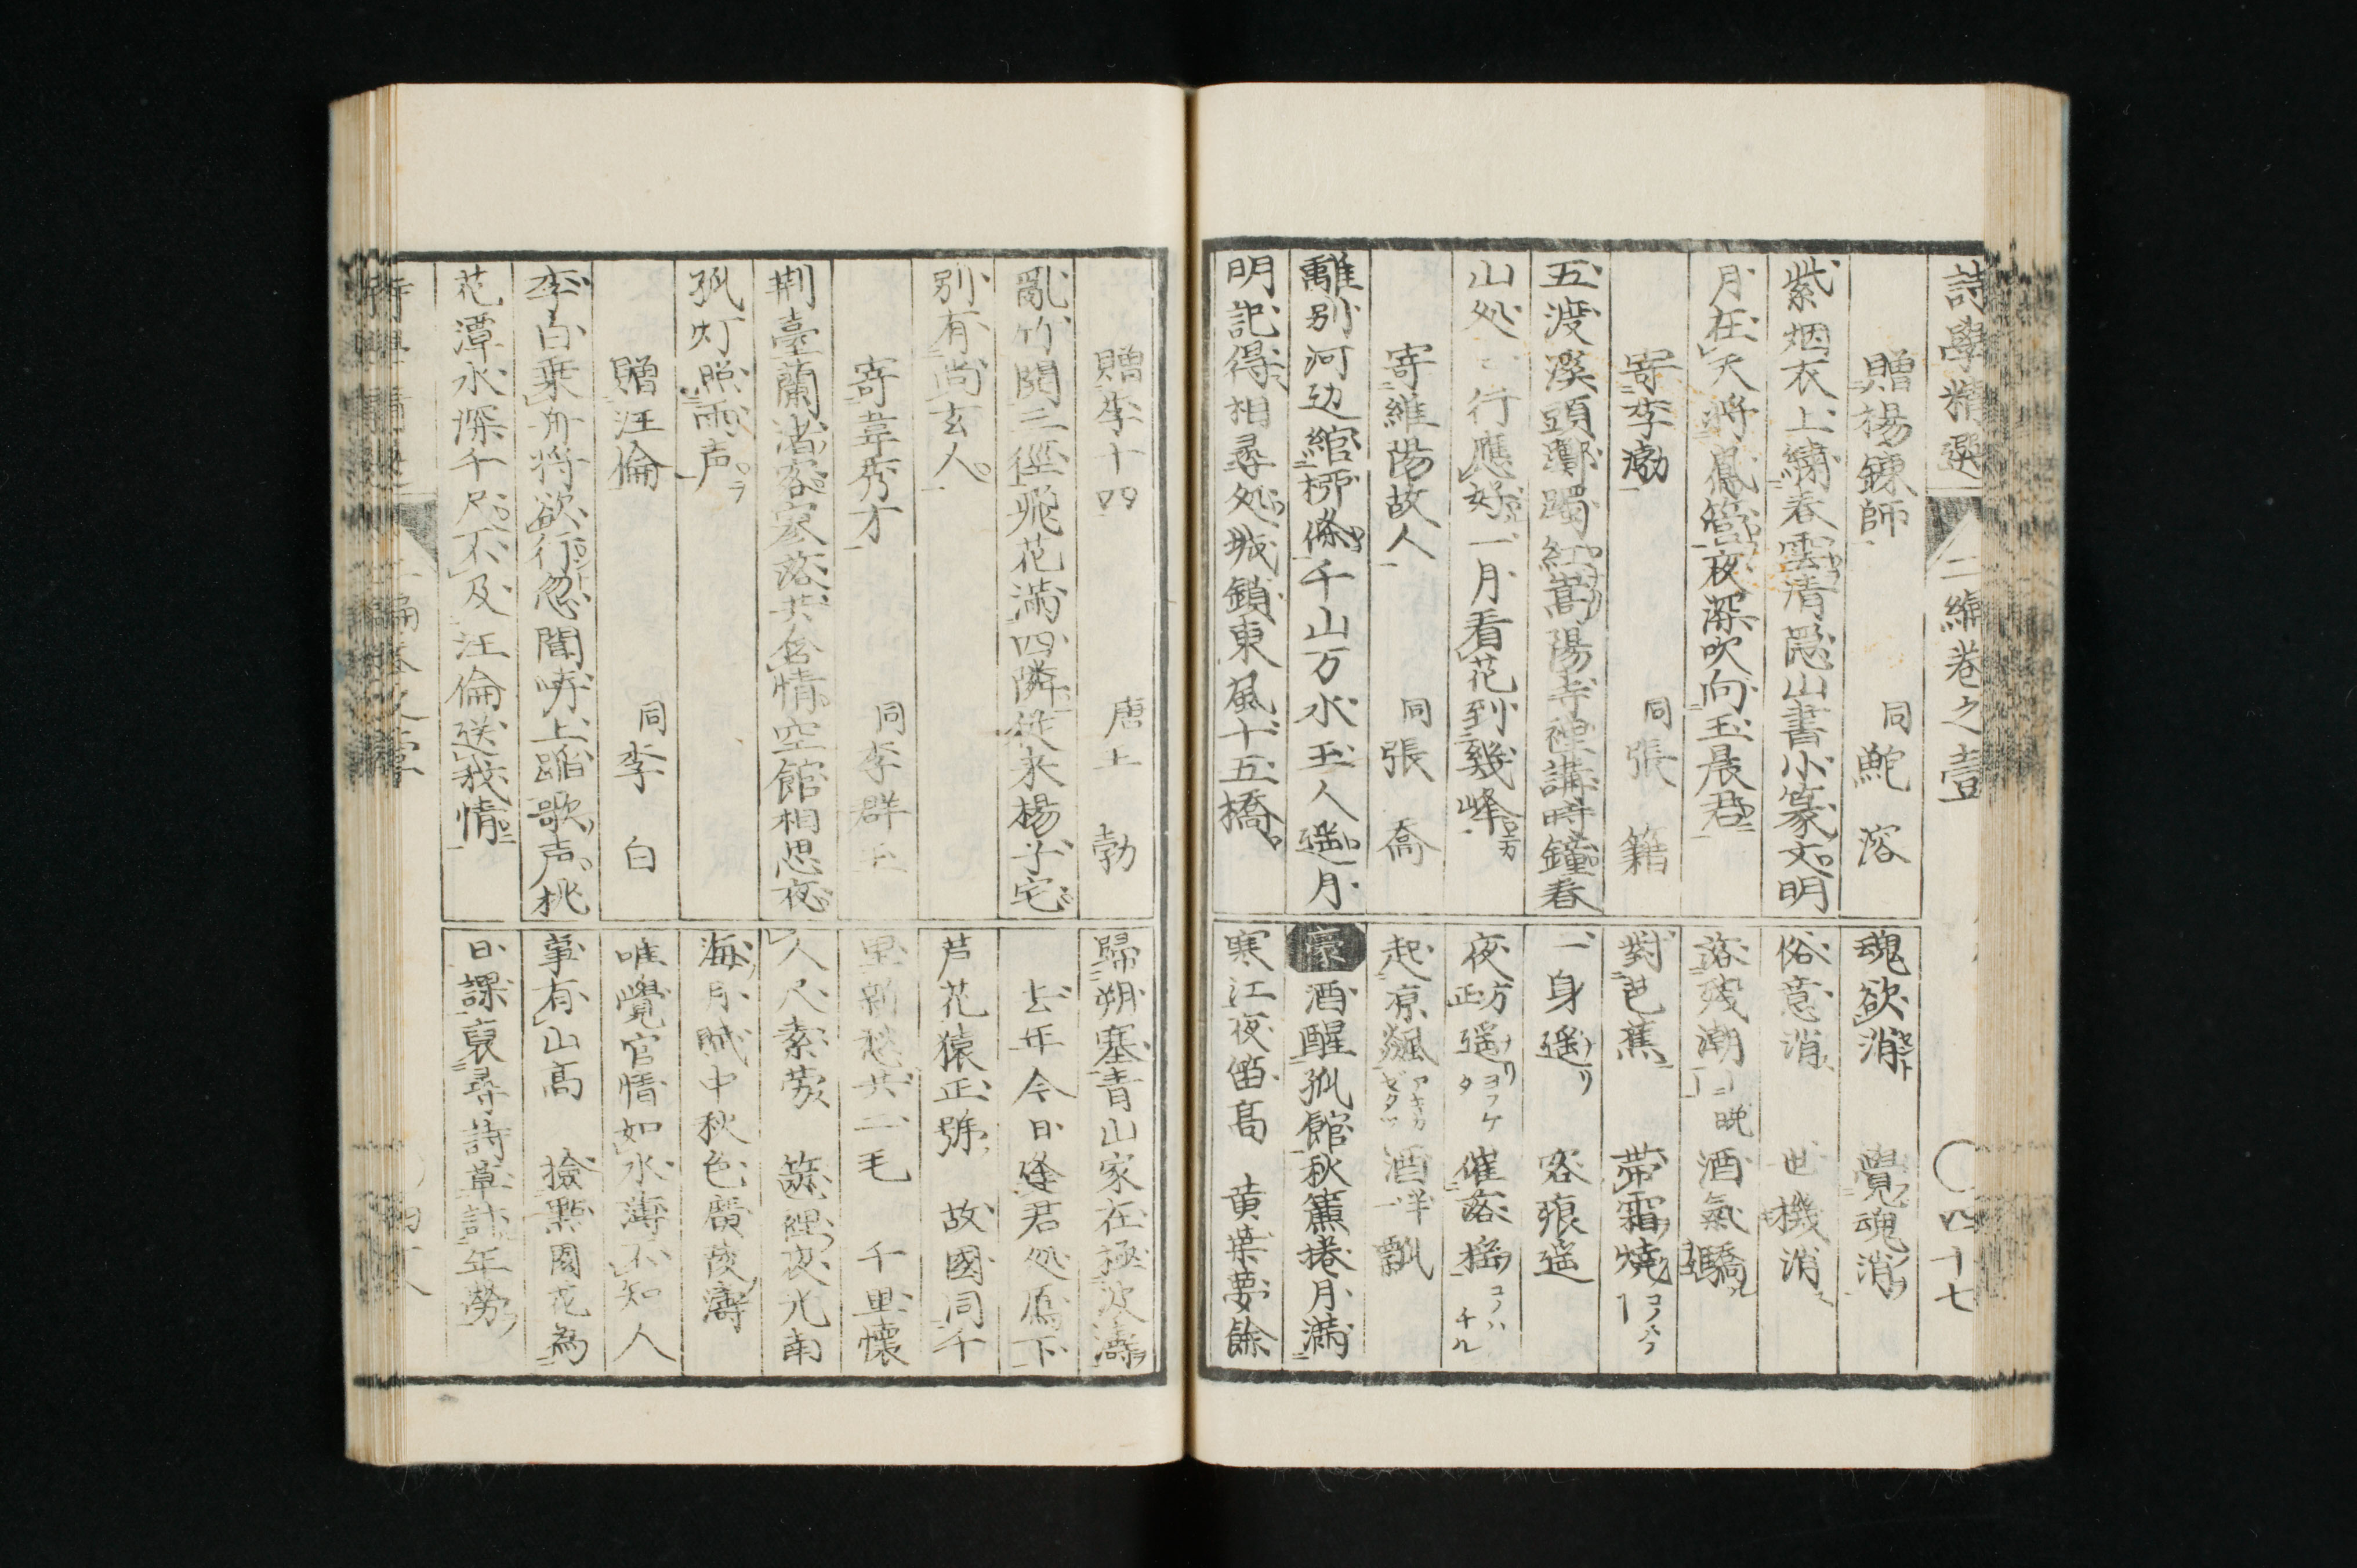 詩學精選 二編卷之壹 〇四十七
贈楊錬師 同鮀溶
紫烟衣上繡春雲清隠山書小篆文明
月在天将鳳管夜深吹向玉晨君
寄李渤 同張籍
五渡溪頭躑躅紅嵩陽寺裡講時鐘春
山処〻行應好一月看花到幾峰
寄維陽故人 同張喬
離別河辺綰桺條千山万水玉人遥月
明記得相尋処城鎖東風十五橋
魂欲消 覺魂消
俗意消 世機消
落殘潮 晩酒氣驕
對芭蕉 帯霜焼
一身遥 客痕遥
夜方遥 催落
起凉飆 酒一瓢
豪 酒醒孤館秋簾捲月満
寒江夜笛高 黄葉夢餘
贈李十四 唐王勃
亂竹開三徑飛花満四隣従来楊子宅
別有尚玄人
寄韋秀才 同李群玉
荆臺蘭渚客寥落共含情空館相思夜
孤灯照雨声
贈汪倫 同李白
李白乗舟将欲行忽聞岸上踏歌声桃
花潭水深千尺不及汪倫送我情
歸朔塞青山家在極波濤
去年今日逢君処鴈下
芦花猿正號 故國同千
里新愁共二毛 千里懐
人尺素勞 裡夜光南
海月賦中秋色廣陵濤
唯覺官情如水薄不知人
事有山高 撿點園花為
日課裒尋詩草計年勞